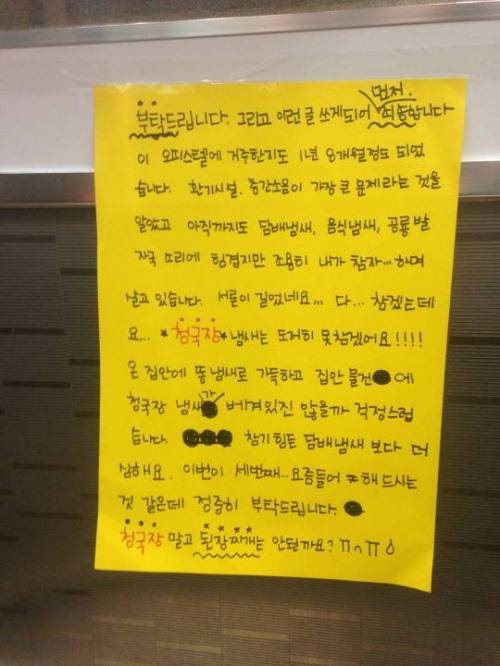 부탁드립니다. 그리고 이런글 쓰게되어 먼저. 죄송합니다
이 오피스텔에 거주한지도 1년 8개월정도 되었
습니다. 환기시설, 층간소음이 가장 큰 문제라는 것을
알았고 아직까지도 담배냄새, 음식냄새, 공룡발
자국 소리에 힘겹지만 조용히 내가 참자...하며
살고 있습니다. 서론이 길었네요... 다... 참겠는데
요... *청국장* 냄새는 도저히 못참겠어요!!!!
온 집안에 똥냄새로 가득하고 집안 물건에
청국장 냄새가 베겨있진 않을까 걱정스럽
습니다. 참기힘든 담배냄새 보다 더
심해요. 이번이 세번째... 요즘들어 해드시는
것 같은데 정중히 부탁드립니다.
청국장 말고 된장찌개는 안될까요? ㅠㅠ